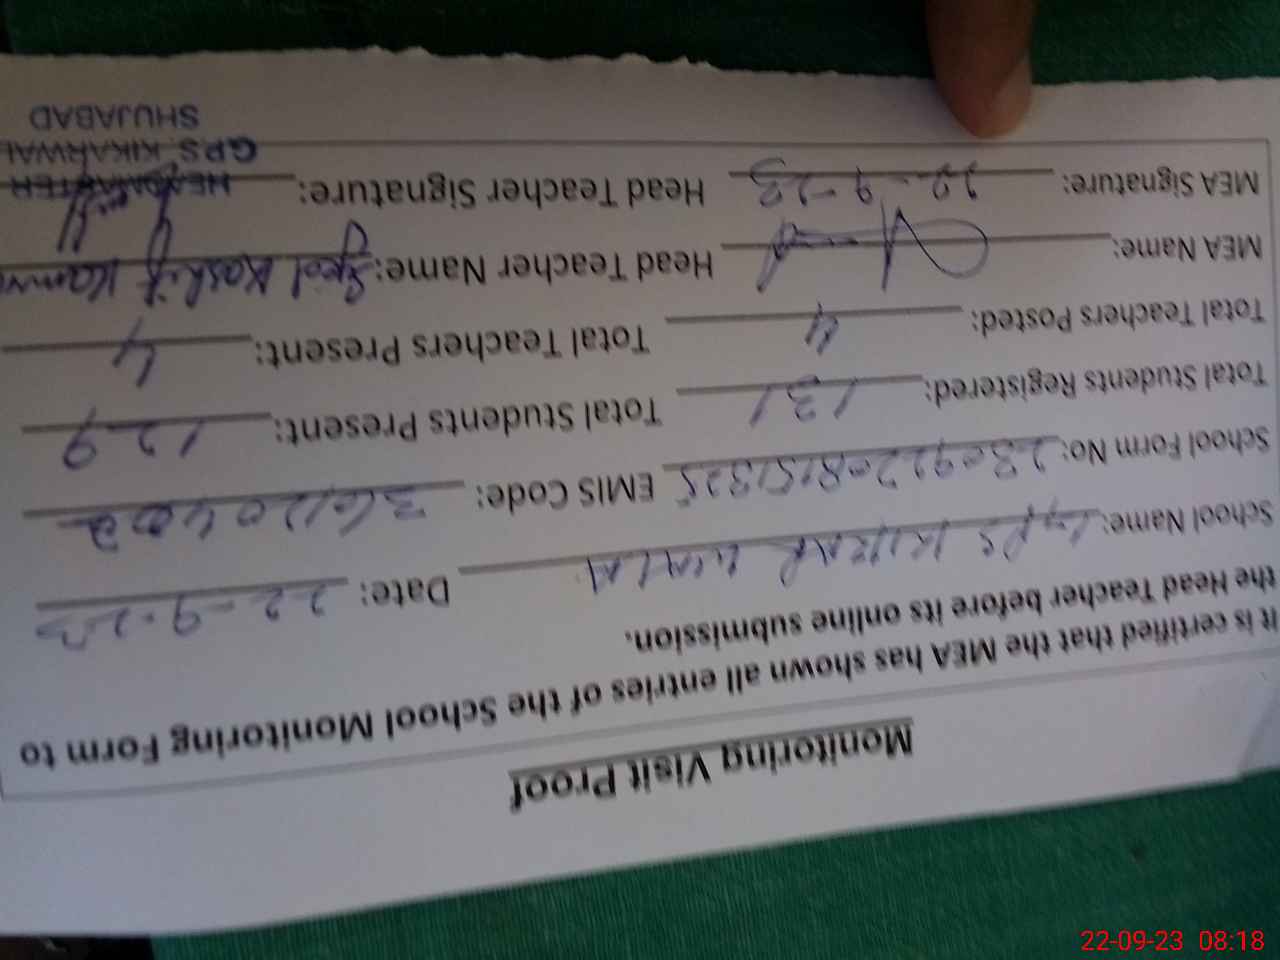 Monitoring Visit Proof
It is certified that the MEA has shown all entries of the School Monitoring Form to
the Head Teacher before its online submission.
School Name: G.P.S KIKAR WALA Date: 22-9-23
School Form No: EMIS Code:
Total Students Registered: 131 Total Students Present: 129
Total Teachers Posted: 4 Total Teachers Present: 4
MEA Name: Head Teacher Name: Syed Kashif
MEA Signature: 22-9-23 Head Teacher Signature:
HEADMASTER
GPS KIKARWAL
SHUJABAD
22-09-23 08:18